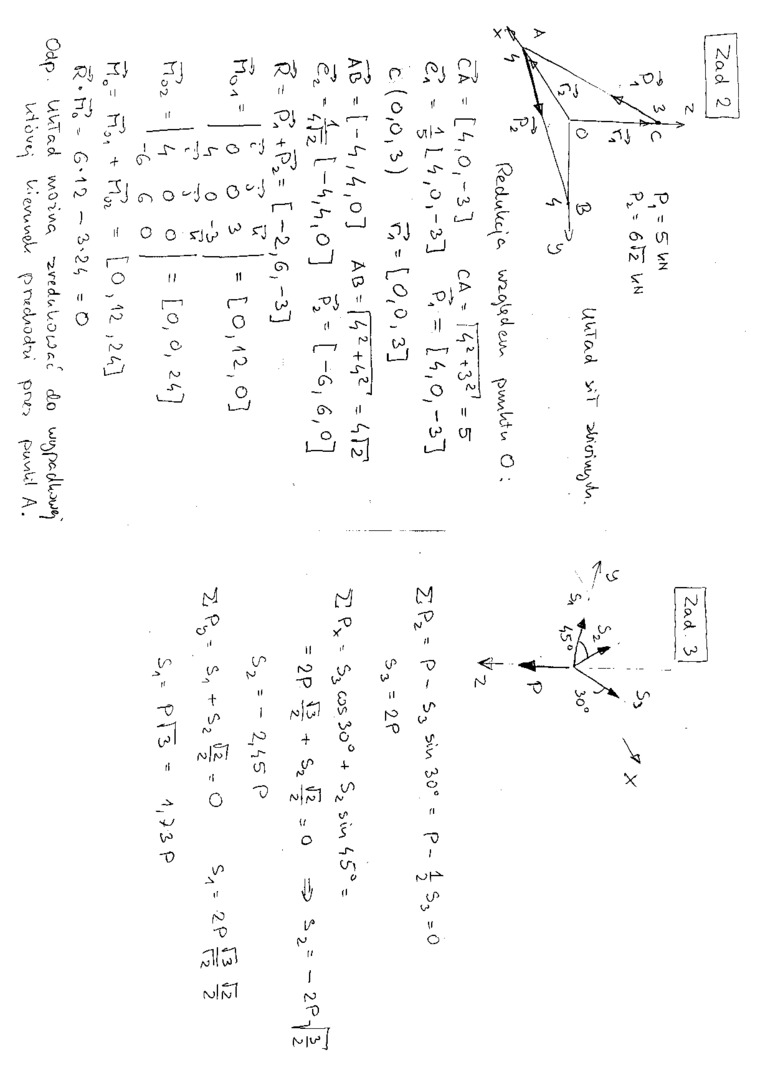 Zad 2
z
C
3
P⃗₁
r⃗₁
O
r⃗₂
A
4
x
P⃗₂
B
4
y
P₁ = 5 kN
P₂ = 6√2 kN
Układ sił zbieżnych.
Redukcja względem punktu O:
C⃗A = [4, 0, -3] CA = √(4² + 3²) = 5
e⃗₁ = 1/5 [4, 0, -3] P⃗₁ = [4, 0, -3]
C (0, 0, 3) r⃗₁ = [0, 0, 3]
A⃗B = [-4, 4, 0] AB = √(4² + 4²) = 4√2
e⃗₂ = 1/(4√2) [-4, 4, 0] P⃗₂ = [-6, 6, 0]
R⃗ = P⃗₁ + P⃗₂ = [-2, 6, -3]
M⃗₀₁ = | i⃗ j⃗ k⃗ |
| 0 0 3 |
| 4 0 -3 | = [0, 12, 0]
M⃗₀₂ = | i⃗ j⃗ k⃗ |
| 4 0 0 |
| -6 6 0 | = [0, 0, 24]
M⃗₀ = M⃗₀₁ + M⃗₀₂ = [0, 12, 24]
R⃗ · M⃗₀ = 6·12 - 3·24 = 0
Odp. Układ można zredukować do wypadkowej
której kierunek przechodzi przez punkt A.
Zad. 3
y
S₁
45°
S₂
S₃
30°
x
P
z
ΣP_z = P - S₃ sin 30° = P - 1/2 S₃ = 0
S₃ = 2P
ΣP_x = S₃ cos 30° + S₂ sin 45° =
= 2P √3/2 + S₂ √2/2 = 0 ⇒ S₂ = -2P √(3/2)
S₂ = -2,45 P
ΣP_y = S₁ + S₂ √2/2 = 0 S₁ = 2P √3/√2 √2/2
S₁ = P√3 = 1,73 P